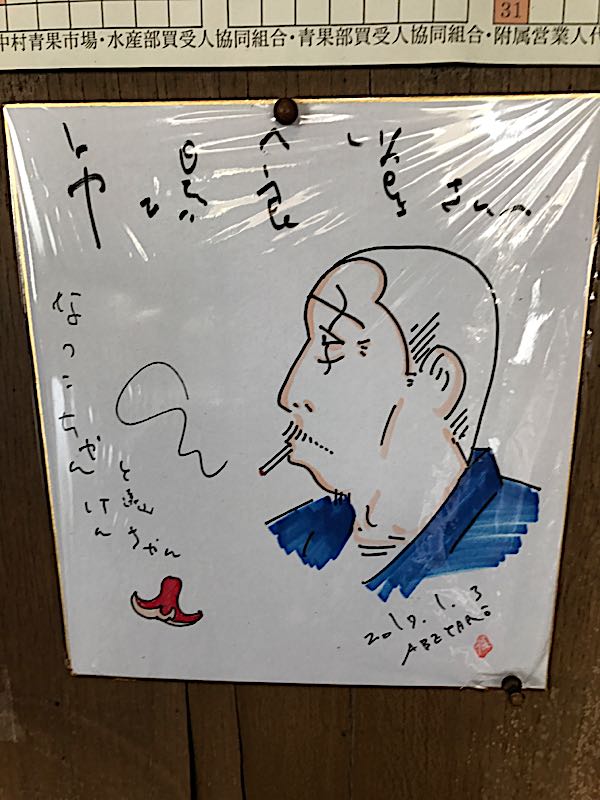 31
中村青果市場・水産部買受人協同組合・青果部買受人協同組合・附属営業人代
市場食堂さんへ
なつこちゃん
と遠山
けんちゃん
2019.1.3
ABE YARO